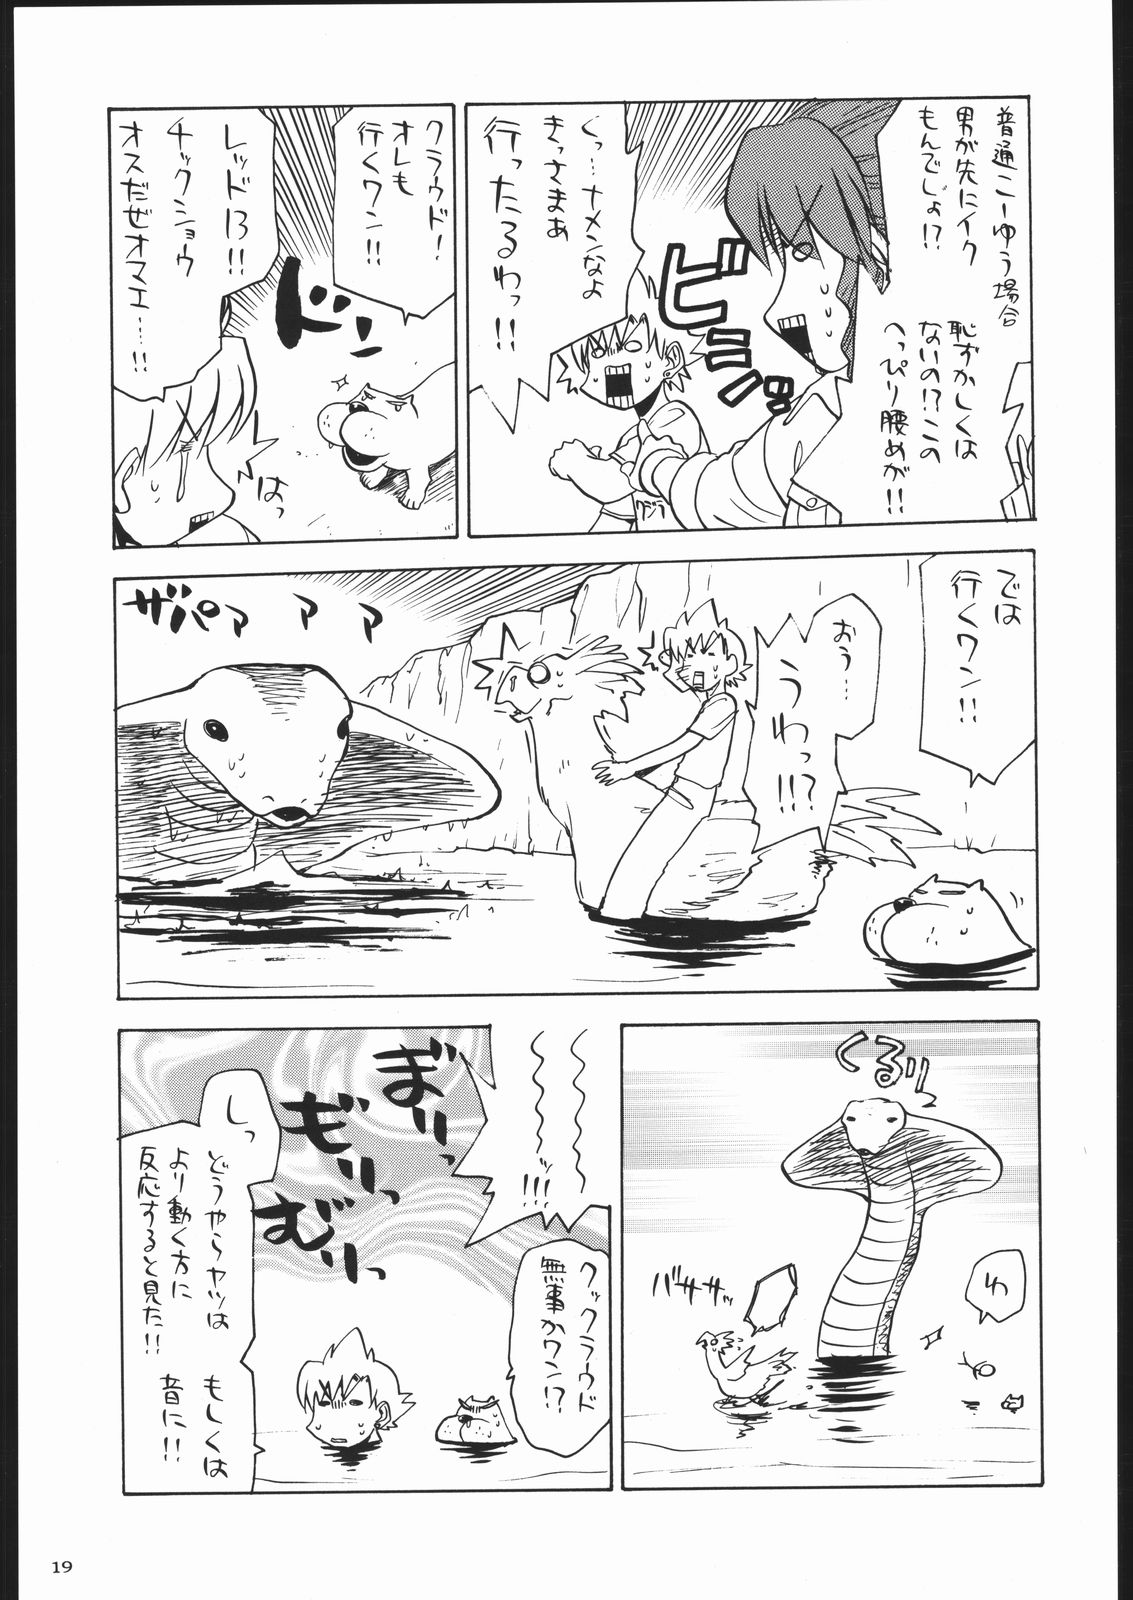 普通こーゆう場合
男が先にイク
もんでしょ!?
恥ずかしくは
ないの!?この
へっぴり腰めが!!
ビシッ
くっ…ナメンなよ
きっさまぁ
行ったるわっ!!
クジラ
クラウド!
オレも
行くワン!!
ドン
レッド13!!
チックショウ
オスだぜオマエ…!!
はっ
では
行くワン!!
おぅ……
うわっ!!!?
ザバァァァァ
くるりっ
わ
バササッ
〜〜〜〜〜ッ!!!
クックラウド
無事かワン!?
ぎりっ
もりっ
むりっ
しっ
どうやらヤツは
より動く方に
反応すると見た!!
もしくは
音に!!
19